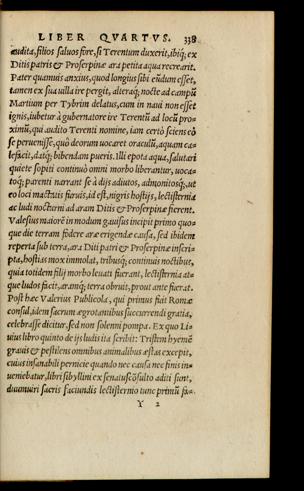 LIBER QVARTVS. 338
audita, filios saluos fore, si Terentum duxerit, ibiq; ex
Ditis patris & Proserpinæ ara petita aqua recrearit.
Pater quamuis anxius, quod longius sibi eũdum esset,
tamen ex sua uilla ire pergit, alteraq; nocte ad campũ
Martium per Tybrim delatus, cum in naui non esset
ignis, iubetur à gubernatore ire Terentũ ad locũ pro=
ximũ, qui audito Terenti nomine, iam certò sciens eò
se peruenisse, quò deorum uocaret oraculũ, aquam ca=
lefacit, datq; bibendam pueris. Illi epota aqua, salutari
quiete sopiti continuò omni morbo liberantur, uoca=
toq; parenti narrant se à dijs adiutos, admonitosq;, ut
eo loci mactatis furuis, id est, nigris hostijs, lectisternia
ac ludi nocturni ad aram Ditis & Proserpinæ fierent.
Valesius maiorē in modum gauisus incipit primo quo=
que die terram fodere aræ erigendæ causa, sed ibidem
reperta sub terra, ara Diti patri & Proserpinæ inscri=
pta, hostias mox immolat, tribusq; continuis noctibus,
quia totidem filij morbo leuati fuerant, lectisternia at=
que ludos facit, aramq; terra obruit, prout ante fuerat.
Post hæc Valerius Publicola, qui primus fuit Romæ
consul, idem sacrum ægrotantibus succurrendi gratia,
celebrasse dicitur, sed non solemni pompa. Ex quo Li=
uius libro quinto de ijs ludis ita scribit: Tristem hyemē
grauis & pestilens omnibus animalibus æstas excepit,
cuius insanabili pernicie quando nec causa nec finis in=
ueniebatur, libri sibyllini ex senatuscõsulto aditi sunt,
duumuiri sacris faciundis lectisternio tunc primũ fa=
Y 2